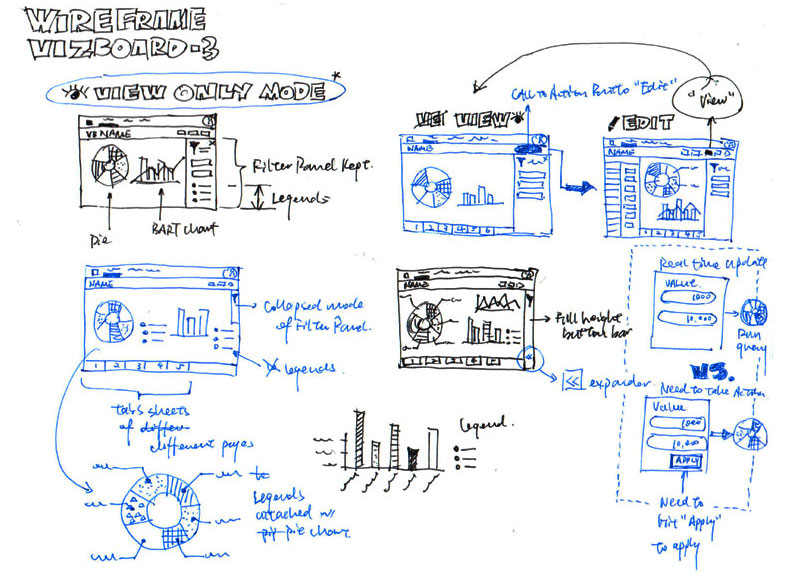 WIREFRAME
VIZBOARD-3
VIEW ONLY MODE*
VB NAME
Filter Panel Kept.
Legends
Pie
BART chart
CALL to Action Point to "Edit"
"View"
VIEW
EDIT
NAME
NAME
1 2 3 4 5 6
1 2 3 4 5
NAME
1 2 3 4 5
Collapsed mode
of Filter Panel.
Legends.
tabs sheets
of differen
different pages
Legends
attached w/
pie chart.
NAME
1 2 3 4 5
<<
Full height
button bar
<< expander.
Legend.
Real time update
VALUE
1000
10,000
Run
query
VS.
Need to take Action
Value
1000
10,000
APPLY
Need to
hit "Apply"
to apply